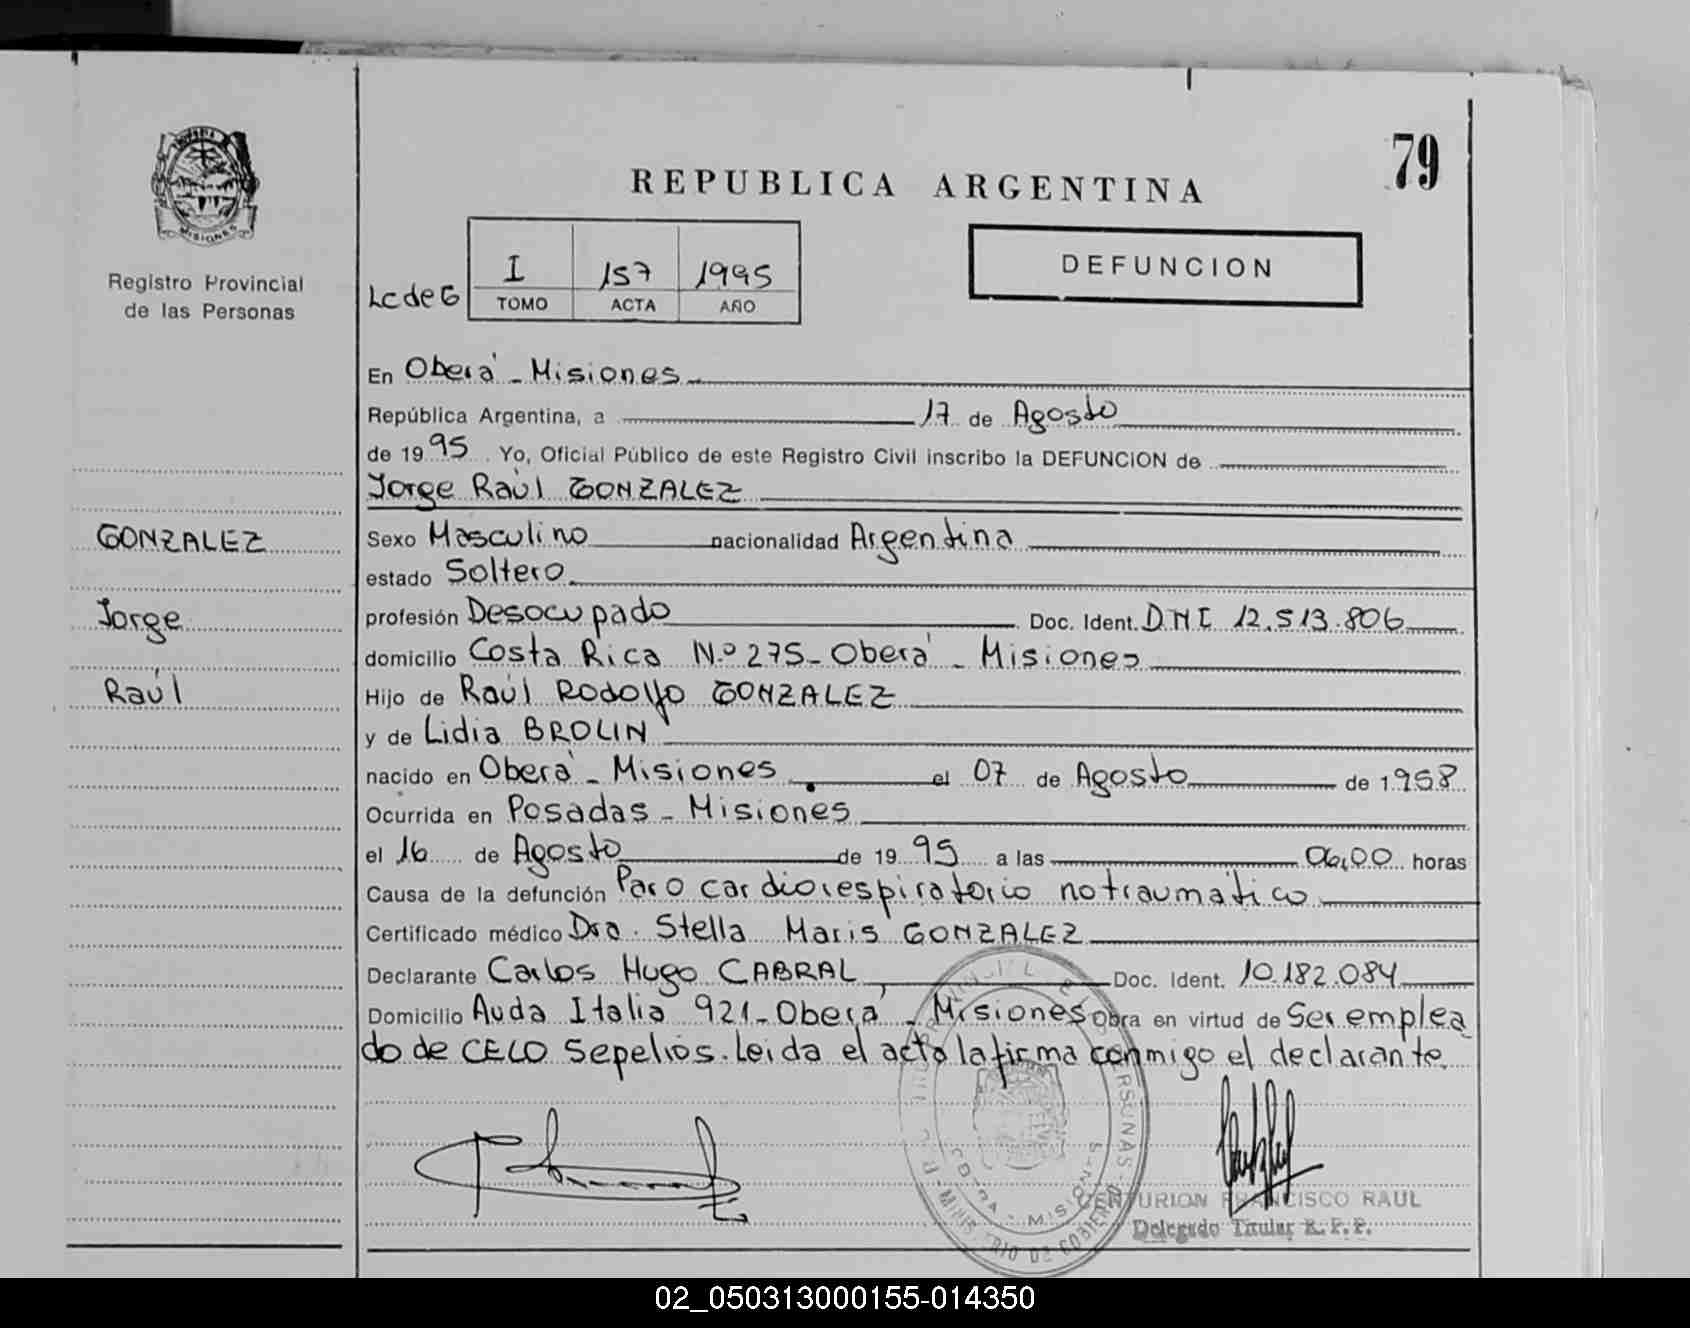 79
REPUBLICA ARGENTINA
MISIONES
Registro Provincial
de las Personas
DEFUNCION
Lc de G
I 157 1995
TOMO ACTA AÑO
En Oberá - Misiones
República Argentina, a 17 de Agosto
de 1995. Yo, Oficial Público de este Registro Civil inscribo la DEFUNCION de
Jorge Raúl GONZALEZ
GONZALEZ
Jorge
Raúl
Sexo Masculino nacionalidad Argentina
estado Soltero
profesión Desocupado Doc. Ident. DNI 12.513.806
domicilio Costa Rica N.º 275 - Oberá - Misiones
Hijo de Raúl Rodolfo GONZALEZ
y de Lidia BROLIN
nacido en Oberá - Misiones el 07 de Agosto de 1958
Ocurrida en Posadas - Misiones
el 16 de Agosto de 1995 a las 06,00 horas
Causa de la defunción Paro cardiorespiratorio no traumático
Certificado médico Dra. Stella Maris GONZALEZ
Declarante Carlos Hugo CABRAL Doc. Ident. 10.182.084
Domicilio Avda Italia 921 - Oberá - Misiones Obra en virtud de Ser emplea
do de CELO Sepelios. Leida el acta la firma conmigo el declarante.
CENTURION FRANCISCO RAUL
Delegado Titular R. P. P.
MINISTERIO DE GOBIERNO
MISIONES
02_050313000155-014350